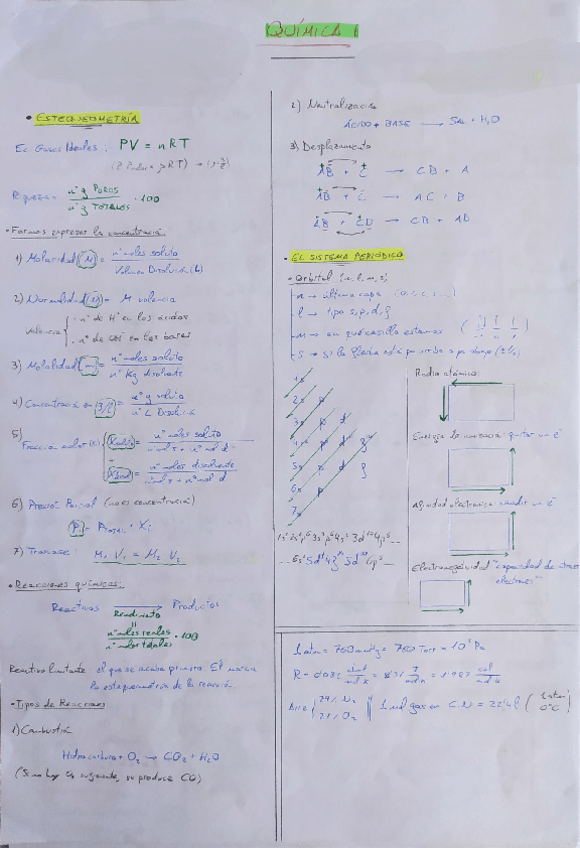 QUÍMICA I
• ESTEQUEOMETRÍA
Ec. Gases Ideales: PV = nRT
Riqueza = nº g PUROS / nº g TOTALES · 100
• Formas expresar la concentración:
1) Molaridad (M) = nº moles soluto / Volumen Disolución (L)
2) Normalidad (N) = M · valencia
Valencia { · nº de H⁺ en los ácidos
· nº de OH⁻ en las bases
3) Molalidad (m) = nº moles soluto / nº Kg disolvente
4) Concentración en g/L = nº g soluto / nº L Disolución
5) Fracción molar (X)
Xsoluto = nº moles soluto / nº mol s + nº mol d
Xdisol = nº moles disolvente / nº mol s + nº mol d
6) Presión Parcial (no es concentración)
Pi = PTOTAL · Xi
7) Trasvase: M₁ · V₁ = M₂ · V₂
• Reacciones químicas:
Reactivos → Productos
Rendimiento
=
nº moles reales / nº moles totales · 100
Reactivo limitante: el que se acaba primero. Él marca
la estequeometría de la reacción
• Tipos de Reacciones
1) Combustión
Hidrocarburo + O₂ → CO₂ + H₂O
(Si no hay O₂ suficiente, se produce CO)
2) Neutralización
ÁCIDO + BASE → SAL + H₂O
3) Desplazamiento
AB + C → CB + A
AB + C → AC + B
AB + CD → CB + AD
• EL SISTEMA PERIÓDICO
• Orbital (n, l, m, s)
n → última capa
l → tipo s, p, d, f
m → en qué casilla estamos
s → si la flecha está por arriba o por abajo (±½)
1s
2s p
3s p d
4s p d f
5s p d f
6s p d
7s p
Radio atómico:
Energía de ionización: quitar un e⁻
Afinidad electrónica: añadir un e⁻
Electronegatividad "capacidad de atraer
electrones"
1s² 2s² p⁶ 3s² p⁶ 4s² 3d¹⁰ 4p⁶ ...
1 atm = 760 mmHg = 760 Torr = 10⁵ Pa
R = 0'082 atm·l / mol·k = 8'31 J / mol·k = 1'987 cal / mol·k
Aire { 79% N₂
21% O₂
1 mol gas en C.N = 22'4 l ( 1 atm
0ºC )